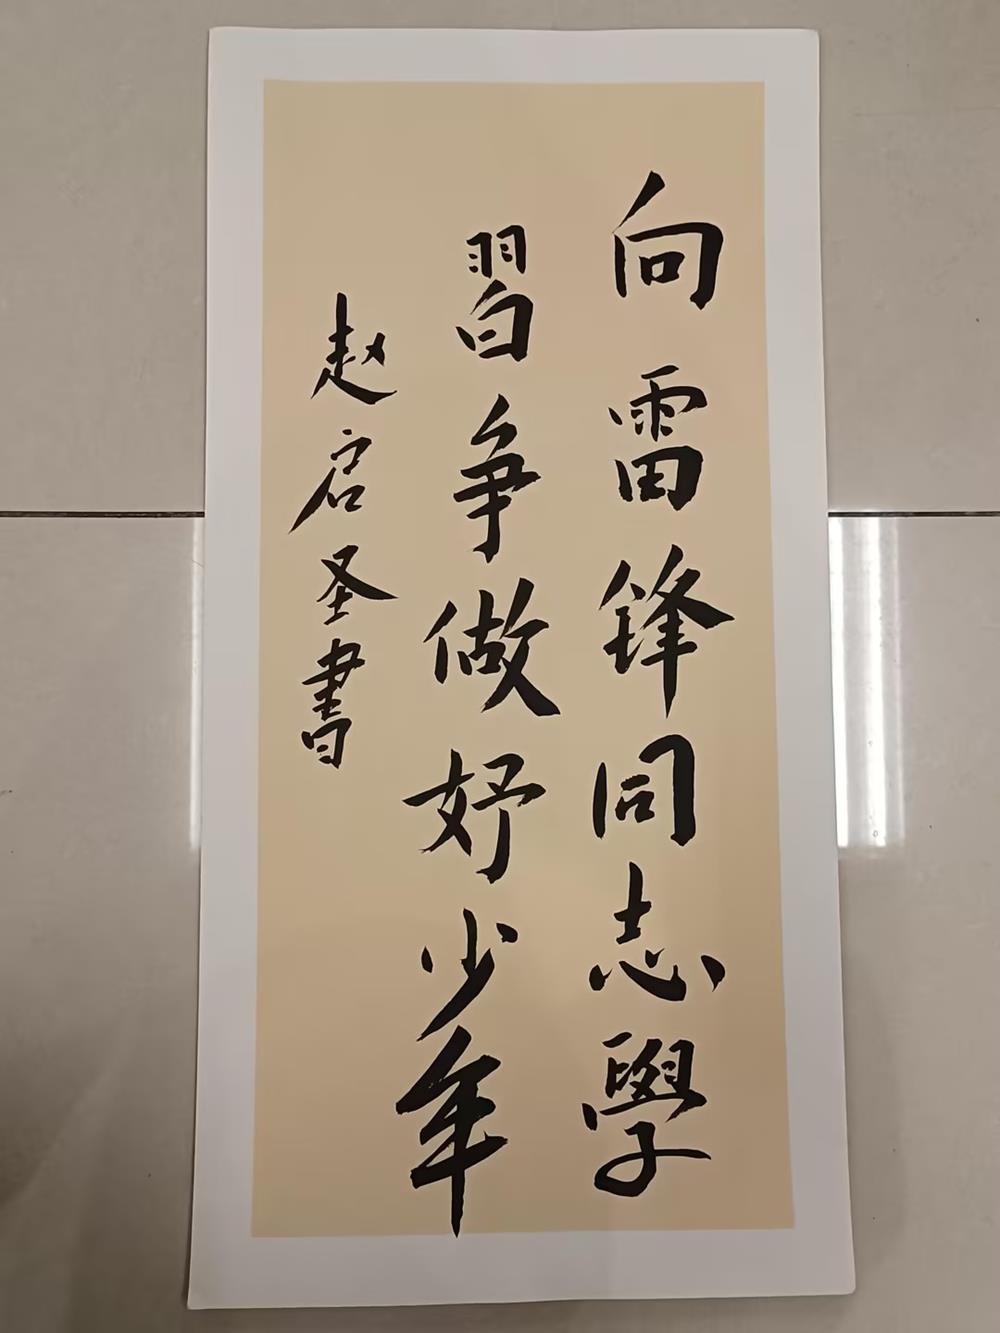 向雷锋同志學
習争做好少年
赵启圣書